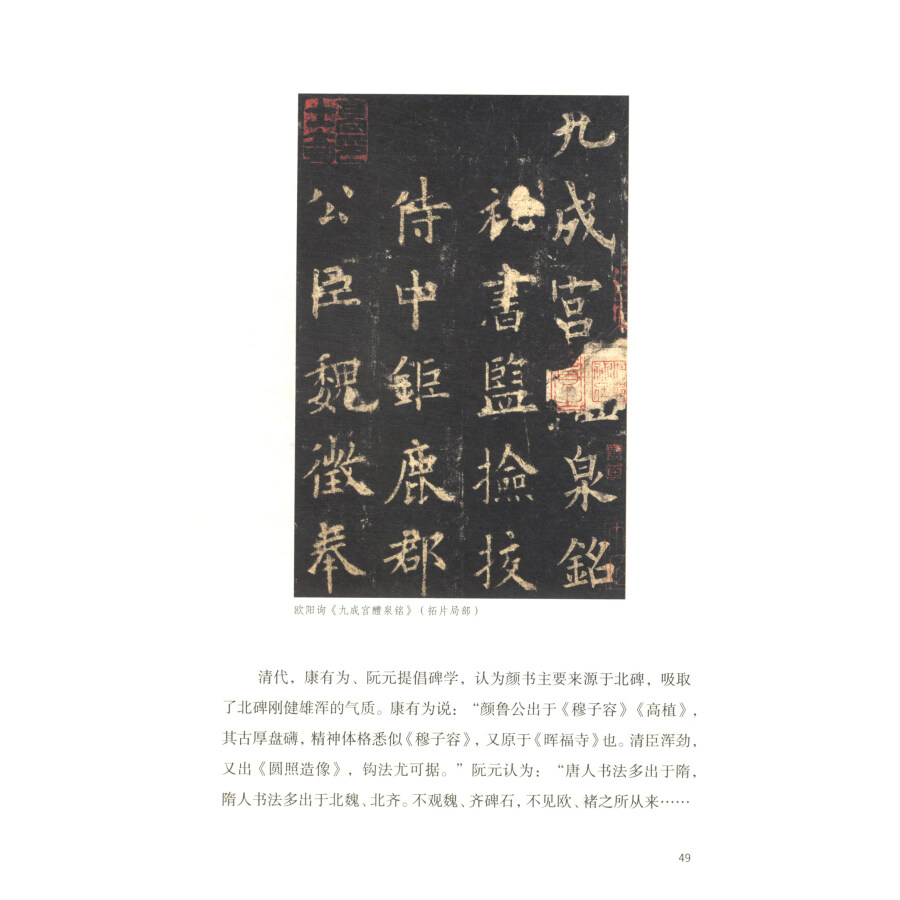 九成宫泉銘
祕書監撿挍
侍中鉅鹿郡
公臣魏徵奉
欧阳询《九成宫醴泉铭》（拓片局部）
清代，康有为、阮元提倡碑学，认为颜书主要来源于北碑，吸取
了北碑刚健雄浑的气质。康有为说：“颜鲁公出于《穆子容》《高植》，
其古厚盘礴，精神体格悉似《穆子容》，又原于《晖福寺》也。清臣浑劲，
又出《圆照造像》，钩法尤可据。”阮元认为：“唐人书法多出于隋，
隋人书法多出于北魏、北齐。不观魏、齐碑石，不见欧、褚之所从来……
49